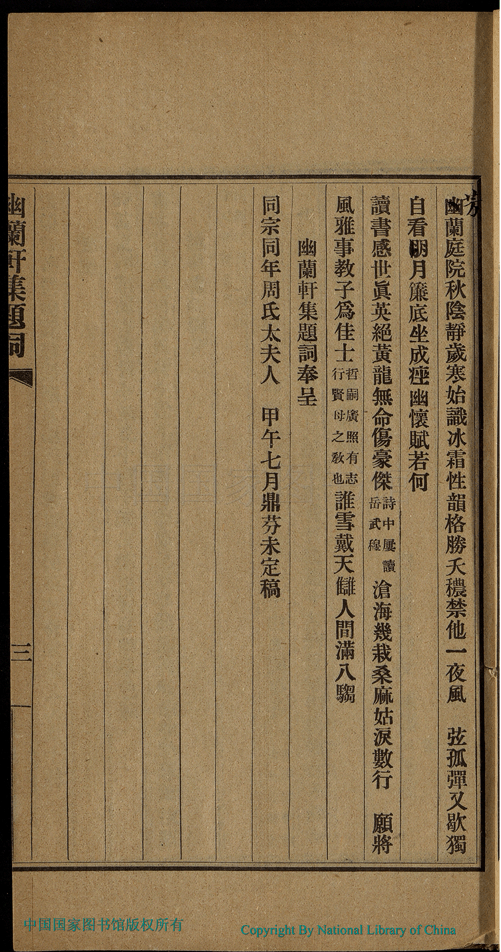 幽蘭庭院秋陰靜歲寒始識冰霜性韻格勝夭穠禁他一夜風　弦孤彈又歇獨
自看明月簾底坐成痙幽懷賦若何
讀書感世眞英絕黃龍無命傷豪傑詩中屢讀岳武穆滄海幾栽桑麻姑淚數行　願將
風雅事教子爲佳士哲嗣廣照有志行賢母之敎也誰雪戴天讎人間滿八騶
幽蘭軒集題詞奉呈
同宗同年周氏太夫人　甲午七月鼎芬未定稿
幽蘭軒集題詞
三
中国国家图书馆版权所有
Copyright By National Library of China